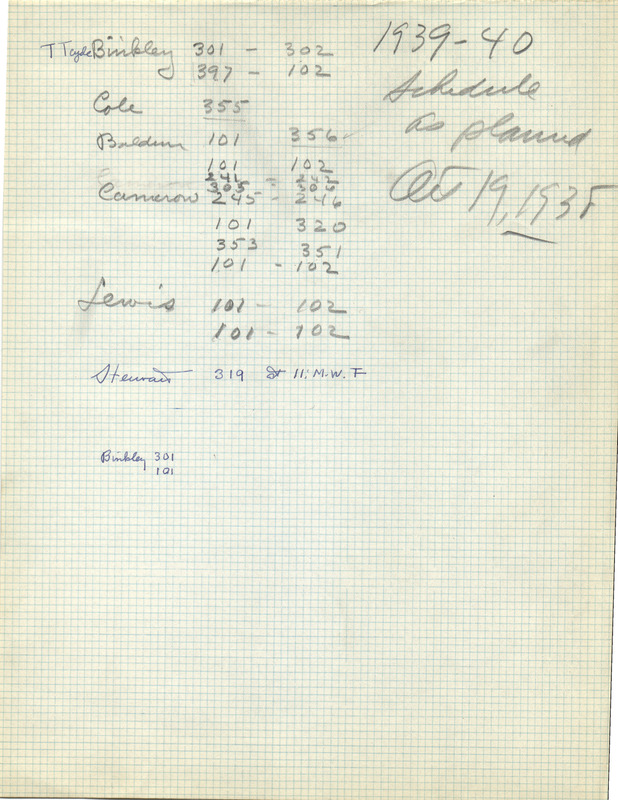 Binkley 301 - 302
397 - 102
Cole 355
Baldwin 101 356
101 102
241 - 242
305 - 306
Cameron 245 - 246
101 320
353 351
101 - 102
Lewis 101 - 102
101 - 102
Stewart 319 at 11: M.W. F
Binkley 301
101
1939-40
Schedule
as planned
Oct 19, 1938